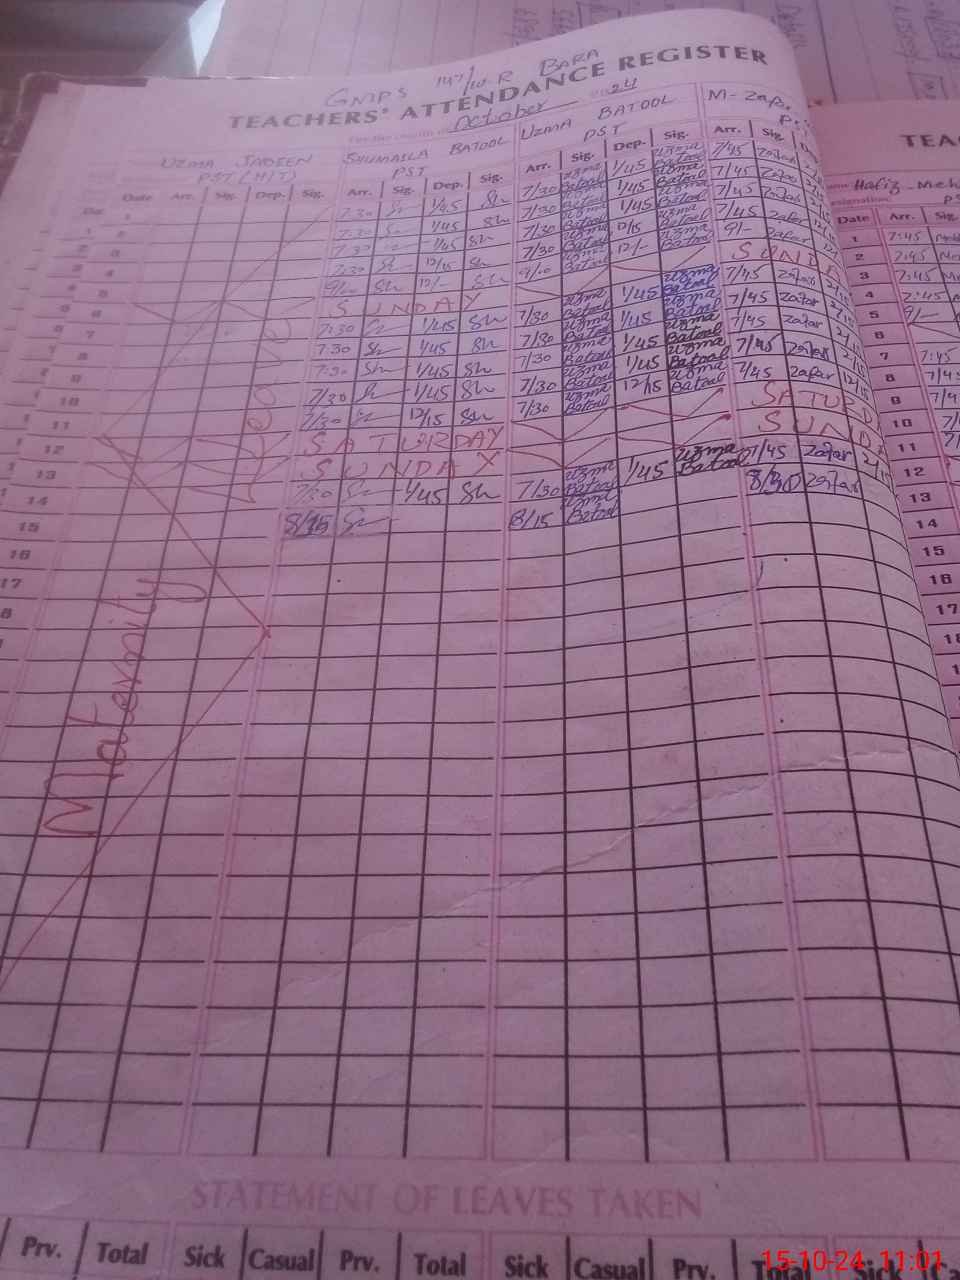 GMPS 147/10R BARA
TEACHERS' ATTENDANCE REGISTER
For the month of October 2024
UZMA JABEEN SHUMAILA BATOOL UZMA BATOOL M-Zafar
PST (H/T) PST PST
Date Arr. Sig. Dep. Sig. Arr. Sig. Dep. Sig. Arr. Sig. Dep. Sig. Arr. Sig.
1 7:30 Sh 1/45 Sh 7/30 uzma Batool 1/45 uzma Batool 7/45 Zafar
2 7:30 Sh 1/45 Sh 7/30 uzma Batool 1/45 uzma Batool 7/45 Zafar
3 7:30 Sh 1/45 Sh 7/30 uzma Batool 1/45 uzma Batool 7/45 Zafar
4 7:30 Sh 12/15 Sh 7/30 uzma Batool 12/15 uzma Batool 7/45 Zafar
5 9/00 Sh 12/- Sh 9/00 uzma Batool 12/- uzma Batool 9/- Zafar
6 SUNDAY SUNDA
7 7:30 Sh 1/45 Sh 7/30 uzma Batool 1/45 uzma Batool 7/45 Zafar
8 7:30 Sh 1/45 Sh 7/30 uzma Batool 1/45 uzma Batool 7/45 Zafar
9 7:30 Sh 1/45 Sh 7/30 uzma Batool 1/45 uzma Batool 7/45 Zafar
10 7/30 Sh 1/45 Sh 7/30 uzma Batool 1/45 uzma Batool 7/45 Zafar
11 7/30 Sh 12/15 Sh 7/30 uzma Batool 12/15 uzma Batool 7/45 Zafar
12 SATURDAY SATURD
13 SUNDAY SUND
14 7/30 Sh 1/45 Sh 7/30 uzma Batool 1/45 uzma Batool 7/45 Zafar
15 8/15 Sh 8/15 uzma Batool 8/30 Zafar
16
17
Maternity
Leave
STATEMENT OF LEAVES TAKEN
Prv. Total Sick Casual Prv. Total Sick Casual Prv. Total Sick
TEA
Hafiz
Date Arr. Sig.
1 7:45
2 7:45
3 7:45
4 7:45
5 9/-
6
7 7:45
8 7/45
9
10
11
12
13
14
15
16
17
15-10-24, 11:01